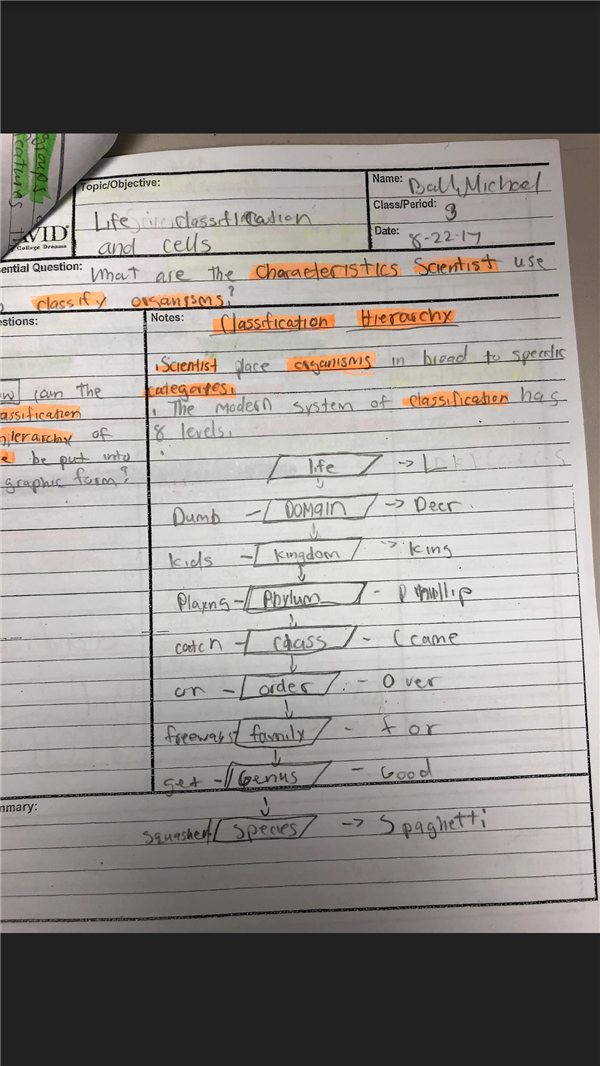 groups
features
Topic/Objective:
Life classification
and cells
Name: Ball, Michael
Class/Period: 3
Date: 8-22-17
VID
College Dreams
ential Question: What are the characteristics Scientist use
classify organisms?
estions:
can the
assification
hierarchy of
be put into
graphic form?
Notes: Classification Hierarchy
. Scientist place organisms in broad to specific
categories.
. The modern system of classification has
8 levels.
life ->
Dumb - Domain -> Deer
kids - kingdom -> King
Plaxng - Phylum - Phillip
catch - class - Ccame
on - order - Over
freeways family - for
get - Genus - Good
squashed species -> Spaghetti
mmary: